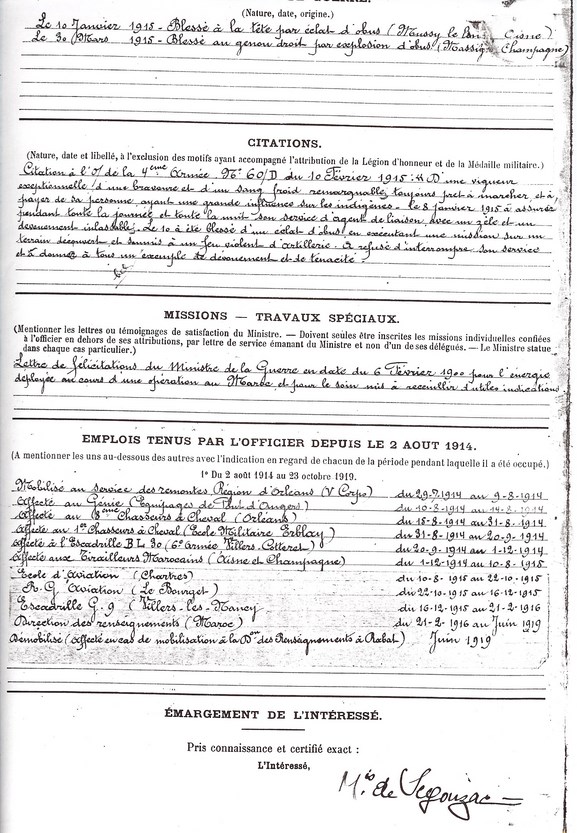 (Nature, date, origine.)
Le 10 Janvier 1915 - Blessé à la tête par éclat d'obus (Moussy le Aisne)
Le 30 Mars 1915 - Blessé au genou droit par explosion d'obus (Massig Champagne)
CITATIONS.
(Nature, date et libellé, à l'exclusion des motifs ayant accompagné l'attribution de la Légion d'honneur et de la Médaille militaire.)
Citation à l'O/ de la 4eme Armée N° 60/D du 10 Février 1915 : "D'une vigueur
exceptionnelle, d'une bravoure et d'un sang froid remarquables, toujours prêt à marcher et à
payer de sa personne, ayant une grande influence sur les indigènes - le 8 Janvier 1915 a assuré
pendant toute la journée et toute la nuit son service d'agent de liaison avec un zèle et un
dévouement inlassables. Le 10 a été blessé d'un éclat d'obus en exécutant une mission sur un
terrain découvert et soumis à un feu violent d'artillerie. A refusé d'interrompre son service
et a donné à tous un exemple de dévouement et de ténacité.
MISSIONS — TRAVAUX SPÉCIAUX.
(Mentionner les lettres ou témoignages de satisfaction du Ministre. — Doivent seules être inscrites les missions individuelles confiées
à l'officier en dehors de ses attributions, par lettre de service émanant du Ministre et non d'un de ses délégués. — Le Ministre statue
dans chaque cas particulier.)
Lettre de félicitations du Ministre de la Guerre en date du 6 Février 1900 pour l'énergie
déployée au cours d'une opération au Maroc et pour le soin mis à recueillir d'utiles indications
EMPLOIS TENUS PAR L'OFFICIER DEPUIS LE 2 AOUT 1914.
(A mentionner les uns au-dessous des autres avec l'indication en regard de chacun de la période pendant laquelle il a été occupé.)
1° Du 2 août 1914 au 23 octobre 1919.
Mobilisé au service des remontes Région d'Orléans (V Corps) du 29-7-1914 au 9-8-1914
Affecté au Génie (Equipages de Pont d'Angers) du 10-8-1914 au 14-8-1914
Affecté au 8eme Chasseurs à Cheval (Orléans) du 15-8-1914 au 31-8-1914
Affecté au 1er Chasseurs à Cheval (Ecole Militaire Erblay) du 31-8-1914 au 20-9-1914
Affecté à l'Escadrille BL 30 (6e Armée Villers-Cotteret) du 20-9-1914 au 1-12-1914
Affecté aux Tirailleurs Marocains (Aisne et Champagne) du 1-12-1914 au 10-8-1915
Ecole d'Aviation (Chartres) du 10-8-1915 au 22-10-1915
R.G. Aviation (Le Bourget) du 22-10-1915 au 16-12-1915
Escadrille G.9 (Villers-les-Nancy du 16-12-1915 au 21-2-1916
Direction des renseignements (Maroc) du 21-2-1916 au Juin 1919
Démobilisé (affecté en cas de mobilisation à la Don des Renseignements à Rabat) Juin 1919
ÉMARGEMENT DE L'INTÉRESSÉ.
Pris connaissance et certifié exact :
L'Intéressé,
Mis de Segonzac